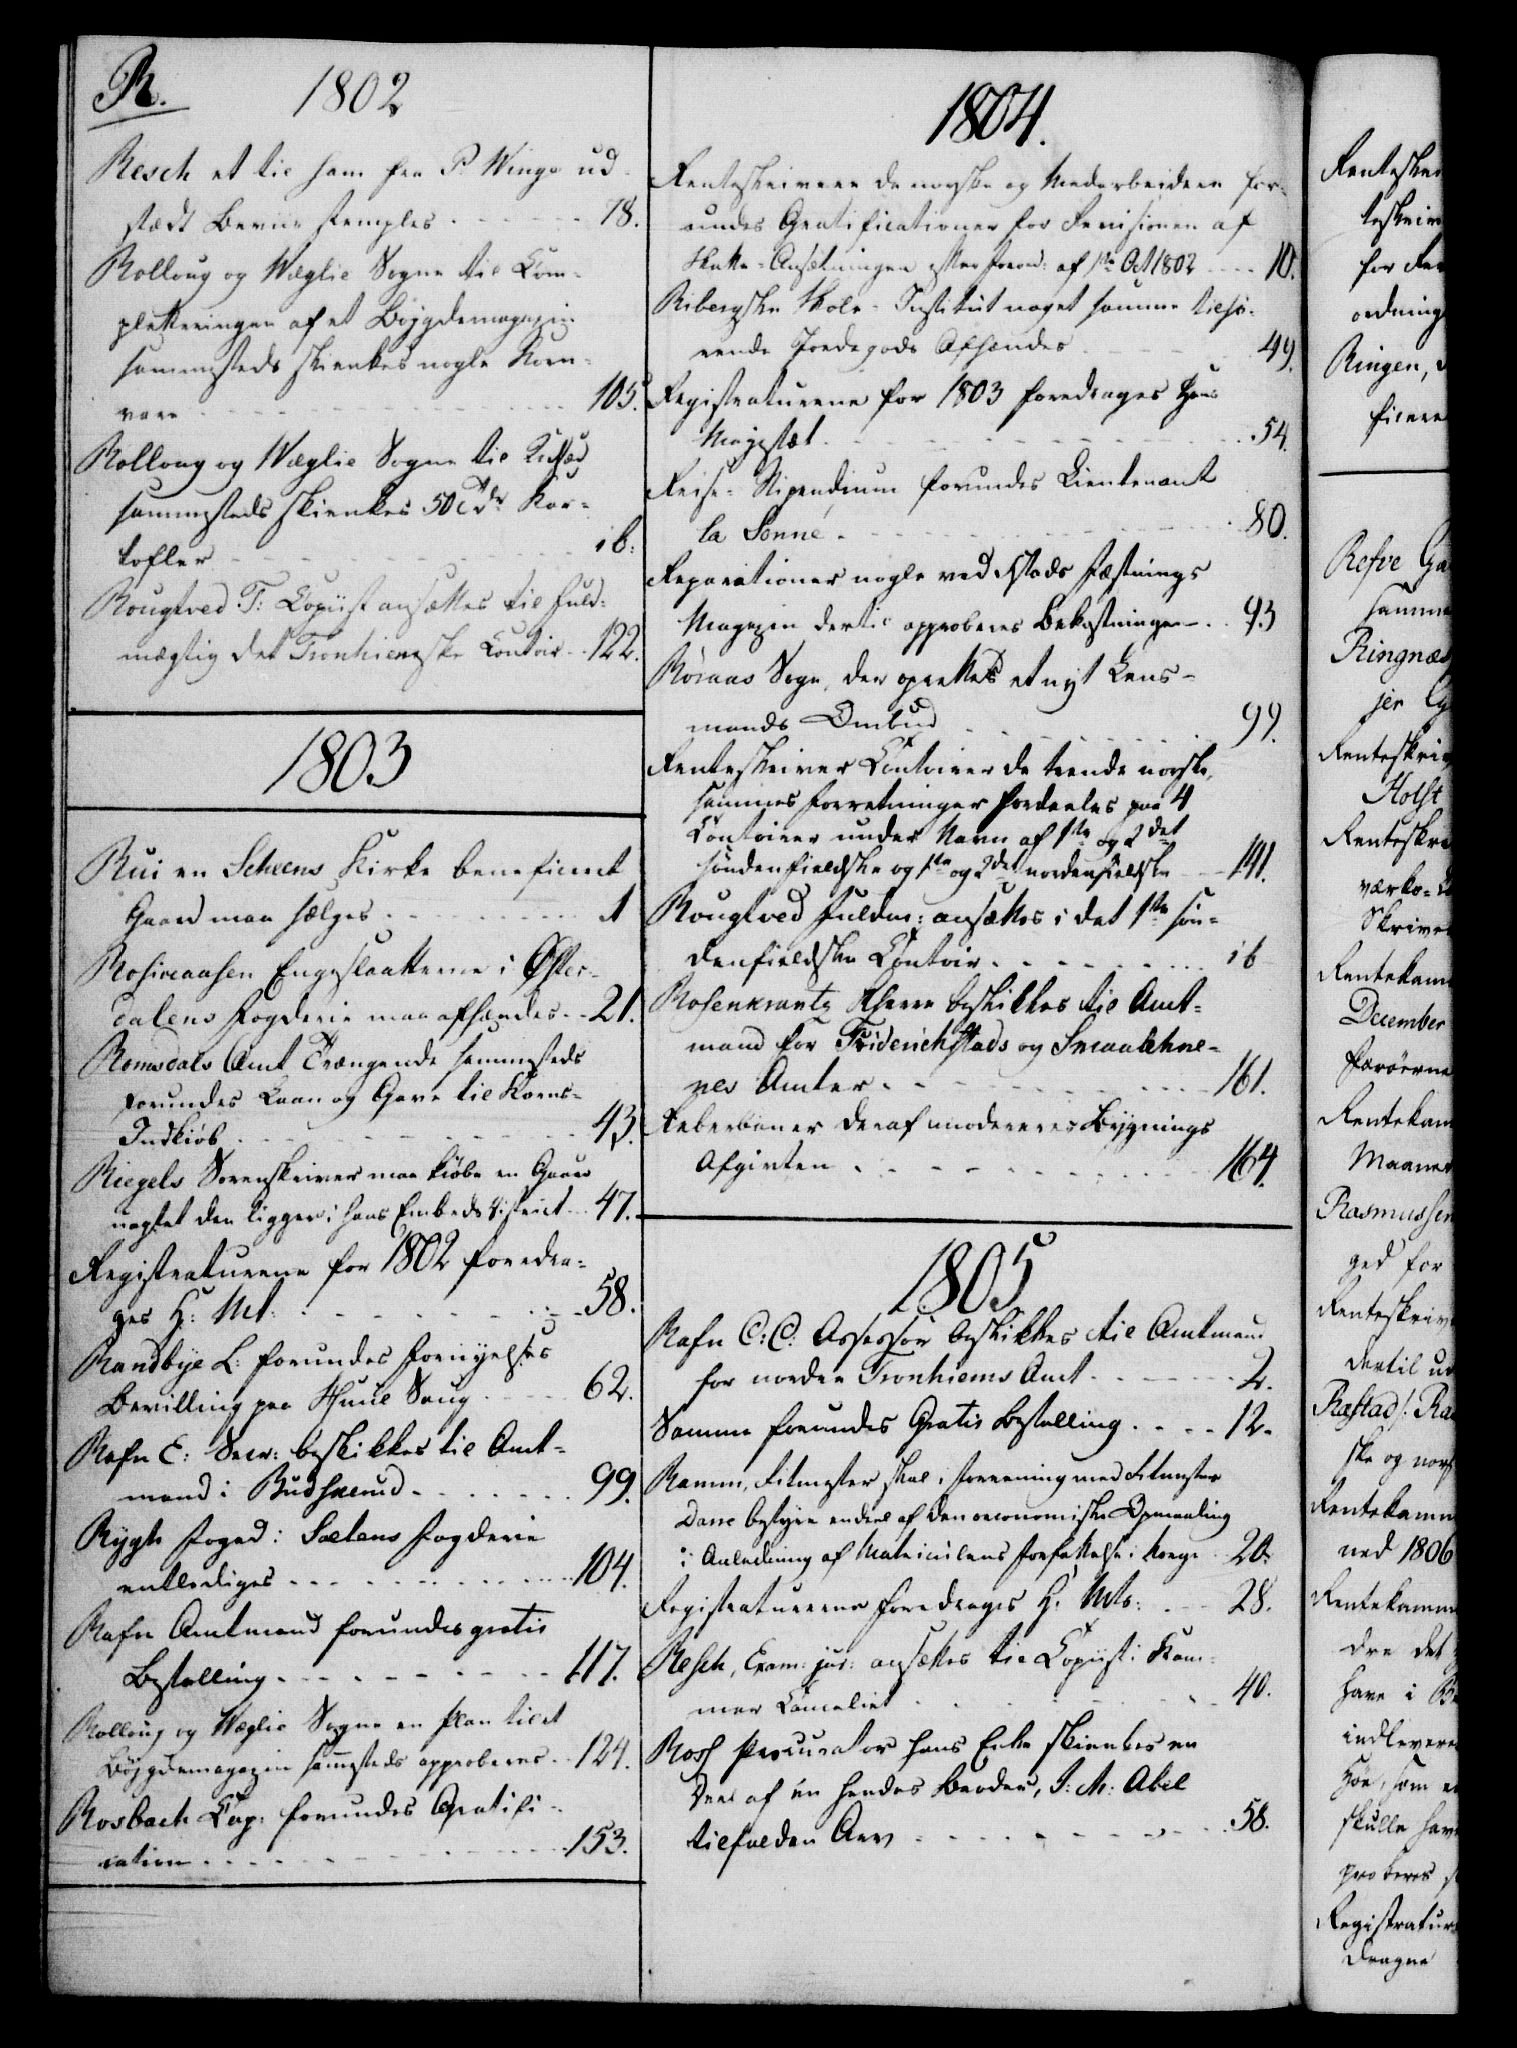 R.
1802
Resch et til ham fra P. Winge ud-
stædt Beviis stemples 78.
Rolloug og Weglie Sogne til Com-
pletteringen af et Böygdemagazin
sammesteds skienkes nogle Korn-
vare 105.
Rolloug og Weglie Sogne til Udsæd
sammesteds skienkes 50 Tdr Kar-
tofler ib:
Rougtved T: Copiist ansættes til Fuld-
mægtig det Tronhiemske Contoir 122.
1803
Rui en Scheens Kirke beneficeret
Gaard maa sælges 1
Engeslaatterne i Øster-
dalens Fogderie maa afhændes 21.
Romsdals Amt Trængende sammesteds
forundes Laan og Gave til Korns-
Indkiöb 43.
Riegels Sorenskriver maa kiöbe en Gaard
uagtet den ligger i hans Embeds District 47.
Registraturerne for 1802 foredra-
ges H: Mt: 58.
Randbye L: forundes Fornyelses
Bevilling paa Hune Saug 62.
Rafn C: Secr: beskikkes til Amt-
mand i Budskerud 99.
Rygh Foged i Soelens Fogderie
entlediges 104.
Rafn Amtmand forundes gratis
Bestalling 117.
Rolloug og Weglie Sogne en Plan til et
Böygdemagazin sammesteds approberes 124.
Rosbach Cap: forundes Gratifi-
cation 153.
1804.
Renteskrivere de norske og Medarbeidere for-
undes Gratificationer for Revisionen af
Skatte-Ansætningen efter Forord: af 1te Oct 1802 10.
Ribergske Skole-Institut noget samme tilhö-
rende Jordegods Afhændes 49.
Registraturerne for 1803 foredrages Hans
Majestæt 54.
Reise-Stipendium forundes Lieutenant
la Sonné 80.
Reparationer nogle ved Fæstnings
Magazin dertil approberes Bekostningen 93
Röraas Sogn, der oprettes et nyt Lens-
mands Ombud 99.
Renteskriver Contoirer de tvende norske,
sammes Forretninger fordeeles paa 4
Contoirer under Navn af 1te og 2det
söndenfieldske og 1te og 2det nordenfieldske 141.
Rougtved Fuldm: ansættes i det 1te sön-
denfieldske Contoir ib
Rosenkrantz Kherre beskikkes til Amt-
mand for Friderichstads og Smaalehne-
nes Amter 161.
Reberbaner deraf modereres Bygnings
Afgivten 164.
1805
Rafn C: C: Assessor beskikkes til Amtmand
for nordre Tronhiems Amt 2.
Samme forundes Gratis Bestalling 12.
Ramm, Ritmester skal i Forening med Ritmester
Dane bestyre endeel af den oeconomiske Opmaaling
i Anledning af Matriculens Forfattelse i Norge 20.
Registraturerne foredrages H: Mts: 28.
Resch, Exam: jur: ansættes til Copiist i Kam-
mer Cancelliet 40.
Rosf Procurator hans Enke skienkes en
Deel af en hendes Broder, J: M: Abel
tilfalden Arv 58.
Renteskri
teskriv
for Re
ordning
Ringen,
ficere
Refve Ga
samme
Ringnæs
jer
Renteskriv
Holst
Renteskri
værks-
Skriver
Rentekam
December
Færöerne
Rentekam
Maaned
Rasmussen
ged for
Renteskriv
dertil ud
Ræstad
ske og nors
Rentekamm
ned 1806
Rentekamm
dre det
have i
indlevere
Höe, som
skulle hav
proberes
Registratur
dragne